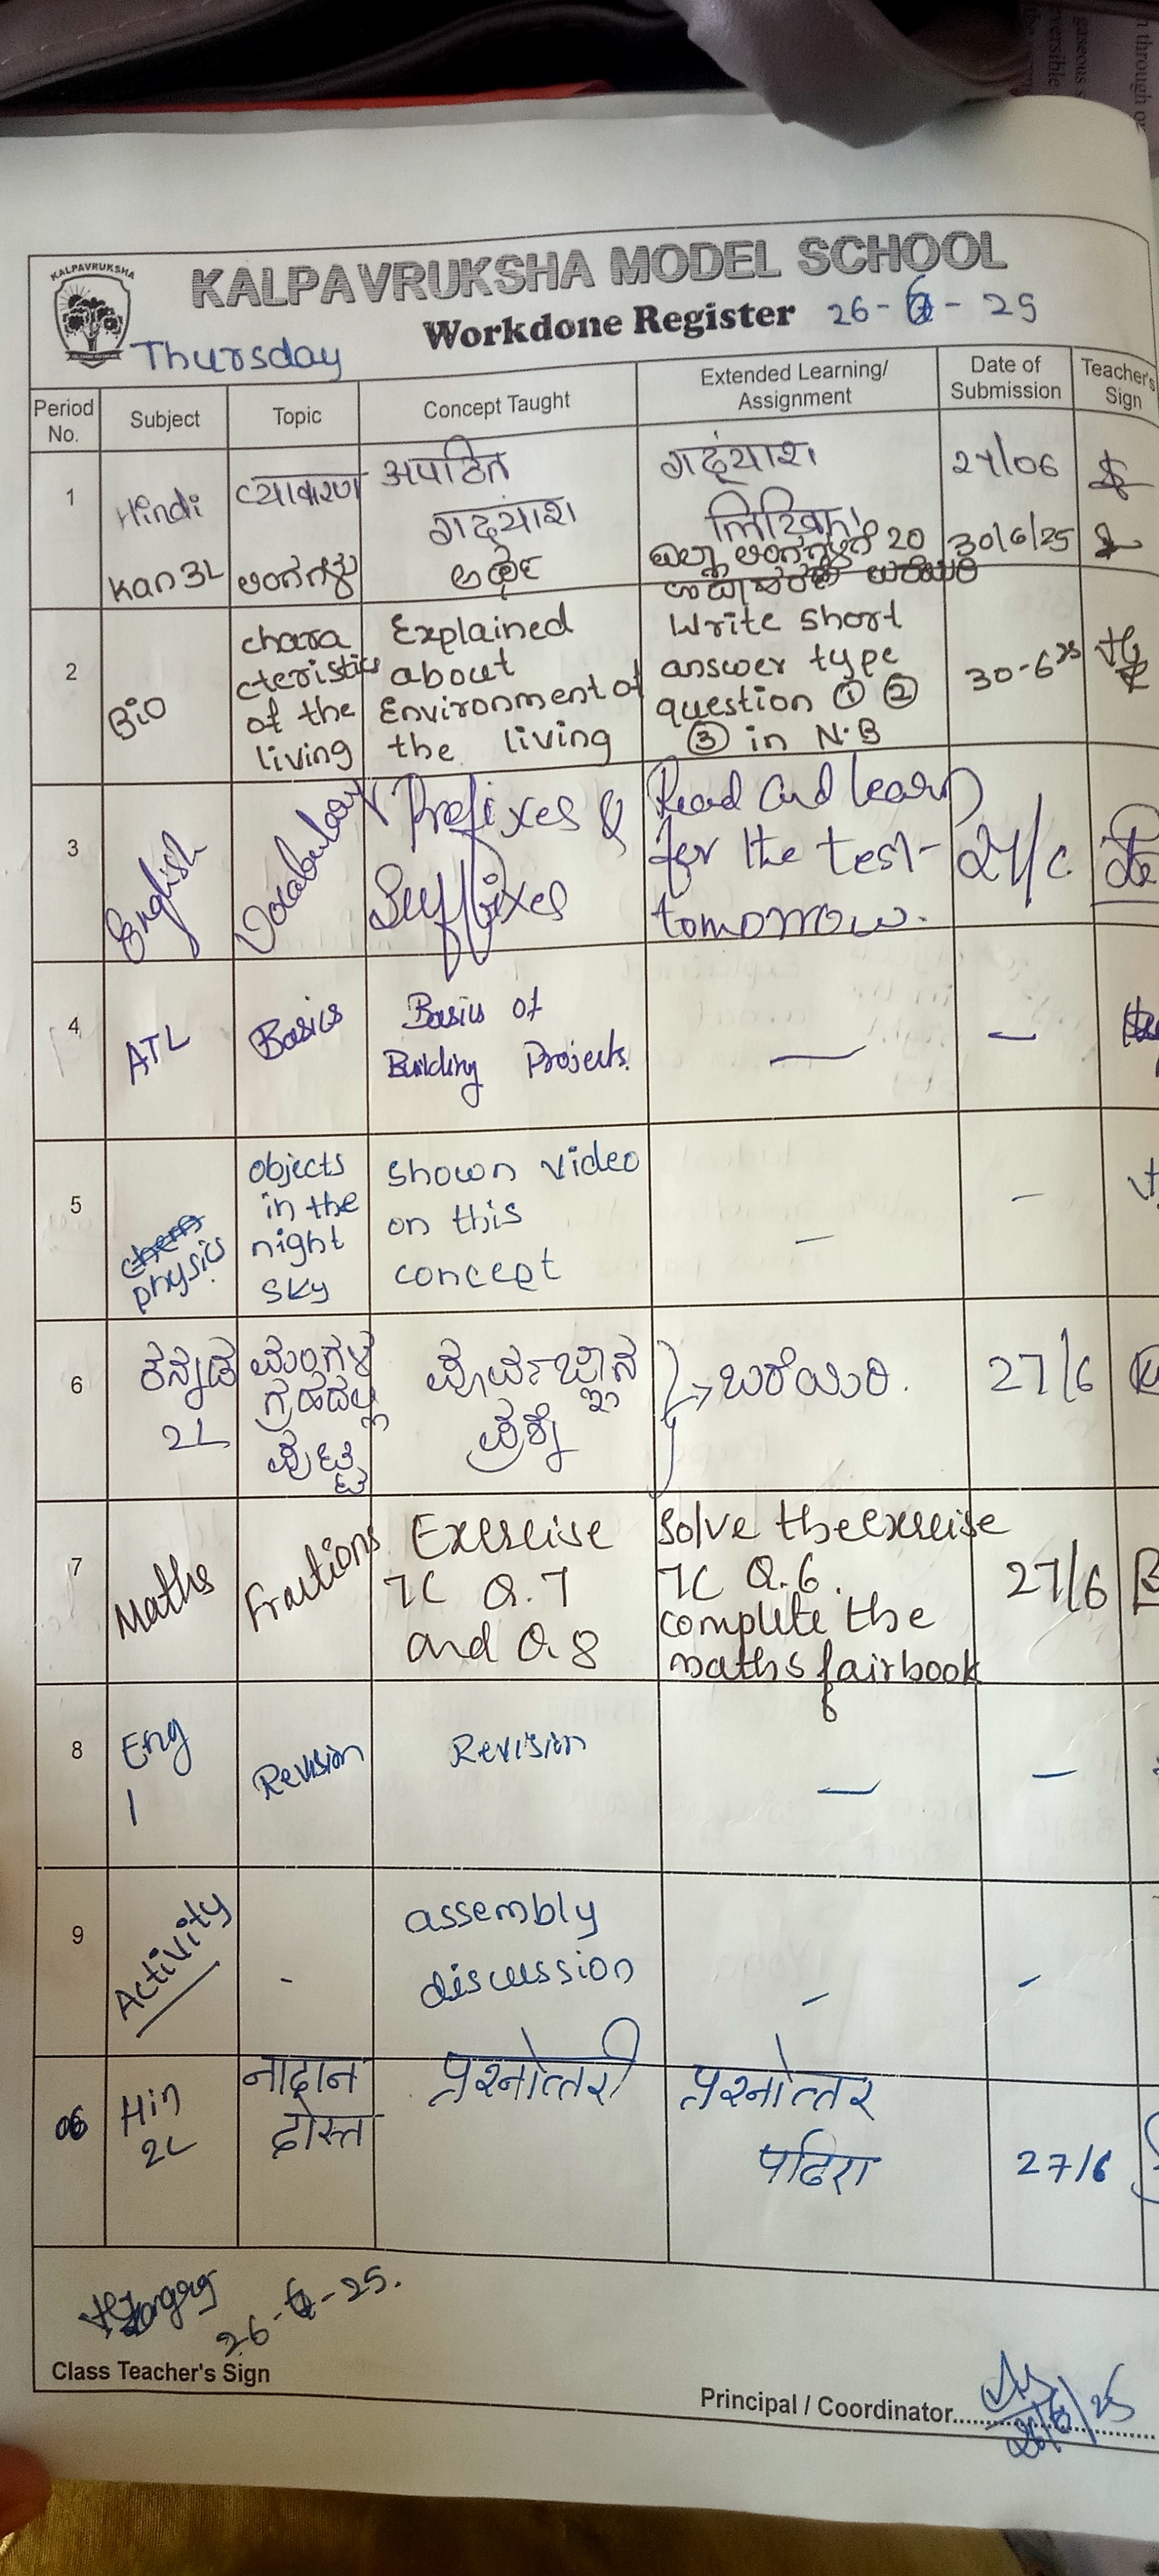 KALPAVRUKSHA
KALPAVRUKSHA MODEL SCHOOL
Workdone Register 26-6-25
Thursday
Period No.
Subject
Topic
Concept Taught
Extended Learning/
Assignment
Date of
Submission
Teacher's
Sign
1
Hindi
व्याकरण
अपठित
गद्यांश
गद्यांश
लिखिए।
27/06
Kan 3L
ಅಂಗಗಳು
ಅರ್ಥ
ಅಂಗಗಳಿಗೆ 20
30/6/25
2
Bio
chara
cteristics
of the
living
Explained
about
Environment of
the living
Write short
answer type
question ① ②
③ in N.B
30-6-25
3
English
Vocabulary
Prefixes &
Suffixes
Read and learn
for the test
tomorrow.
27/6
4
ATL
Basics
Basics of
Building Projects.
—
—
5
chem
physics
objects
in the
night
sky
shown video
on this
concept
—
—
6
ಕನ್ನಡ
2L
ಮಂಗಳ
ಗ್ರಹದಲ್ಲಿ
ಪುಟ್ಟಿ
ಪೂರ್ವಜ್ಞಾನ
ಪ್ರಶ್ನೆ
ಬರೆಯಿರಿ.
27/6
7
Maths
Fractions
Exercise
7C Q.7
and Q.8
Solve the exercise
7C Q.6.
complete the
maths fairbook
27/6
8
Eng
1
Revision
Revision
—
—
9
Activity
-
assembly
discussion
-
-
06
Hin
2L
नादान
दोस्त
प्रश्नोत्तरी
प्रश्नोत्तर
पढिए
27/6
26-6-25.
Class Teacher's Sign
Principal / Coordinator..................
26/6/25